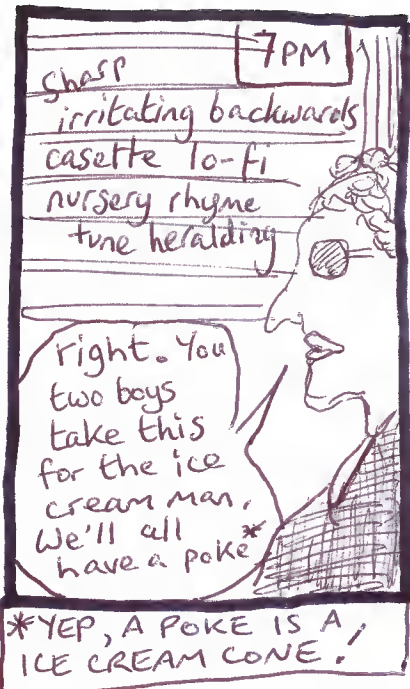 7PM
Sharp
irritating backwards
casette lo-fi
nursery rhyme
tune heralding
right. You
two boys
take this
for the ice
cream man.
We'll all
have a poke*
*YEP, A POKE IS A
ICE CREAM CONE!